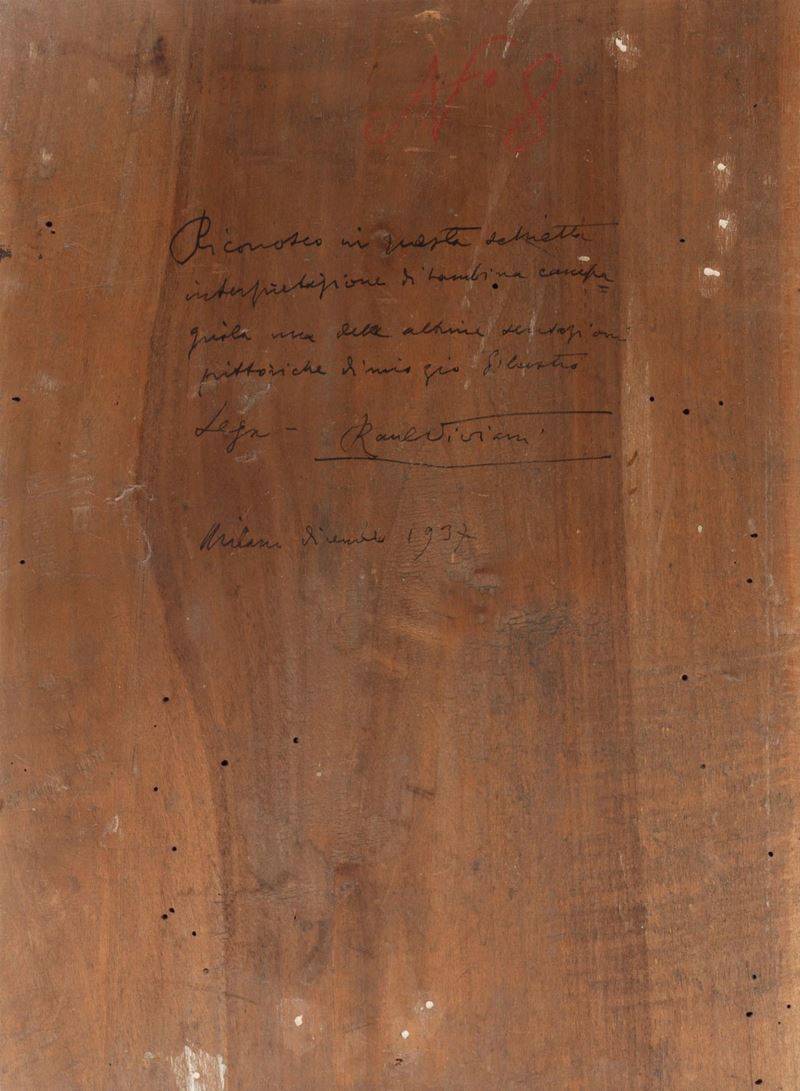 N° 8
Riconosco in questa schietta
interpretazione di bambina campa=
gnola una delle ultime sensazioni
pittoriche di mio zio Silvestro
Lega - Raul Viviani
Milano dicembre 1937